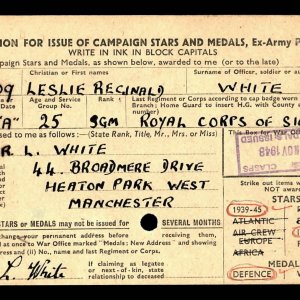 ION FOR ISSUE OF CAMPAIGN STARS AND MEDALS, Ex-Army P
WRITE IN INK IN BLOCK CAPITALS
paign Stars and Medals, as shown below, awarded to me (or to the late)
Christian or First names Surname of Officer, soldier or a
09 LESLIE REGINALD WHITE
Age and Service Group No. Rank Last Regiment or Corps according to cap badge worn
Branch: Home Guard to insert H.G. with County
"A" 25 SGM ROYAL CORPS OF SI
ssed to me as follows:— (State Rank, Title, Mr., Mrs. or Miss)
R. L. WHITE
44 BROADMERE DRIVE
HEATON PARK WEST
MANCHESTER
NOV 1948
CLASPS
Strike out items
NOT
STARS
1939-45
ATLANTIC
AIR CREW
EUROPE
AFRICA
STARS or MEDALS may not be issued for SEVERAL MONTHS
change your permanent address before receiving
ce at once to War Office marked "Medals: New Address" and showing
ddress and (ii) No., name and last Regiment or Corps.
L. White
If claiming as legatee
or next-of-kin, state
relationship to deceased
MED
DEFENCE
4